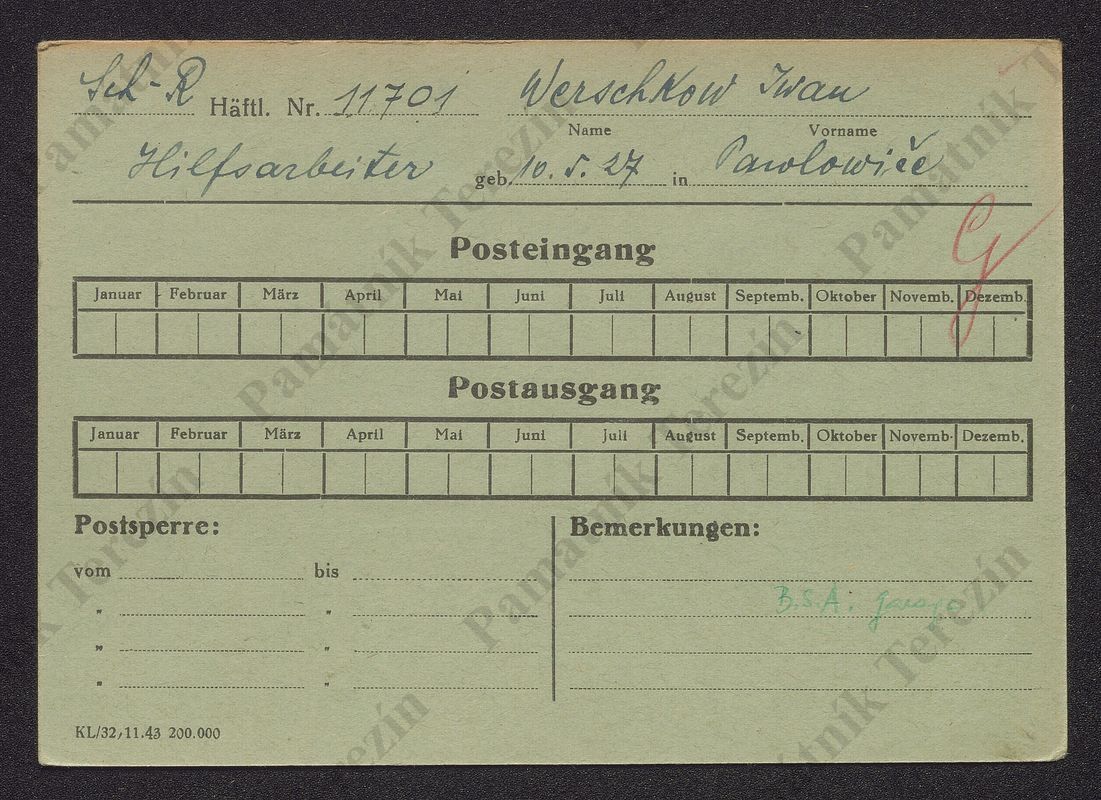 Sch-R Häftl. Nr. 11701 Werschkow Iwan
Name Vorname
Hilfsarbeiter geb. 10. 5. 27 in Pawlowiče
G
Posteingang
Januar Februar März April Mai Juni Juli August Septemb. Oktober Novemb. Dezemb.
Postausgang
Januar Februar März April Mai Juni Juli August Septemb. Oktober Novemb. Dezemb.
Postsperre: Bemerkungen:
vom bis
" "
B.S.A.
" "
" "
KL/32, 11.43 200.000
Památník Terezín